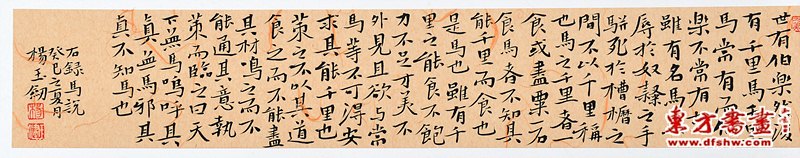 世有伯樂然後
有千里馬千里
馬常有而伯
樂不常有故
雖有名馬
辱於奴隸之手
駢死於槽櫪之
間不以千里稱
也馬之千里者一
食或盡粟一石
食馬者不知其
能千里而食也
是馬也雖有千
里之能食不飽
力不足才美不
外見且欲與常
馬等不可得安
求其能千里也
策之不以其道
食之而不能盡
其材鳴之而不
能通其意執
策而臨之曰天
下無馬嗚呼其
真無馬邪其
真不知馬也
右錄馬説
癸巳之夏月
楊玉釗
東方書畫
www.dfshw.com